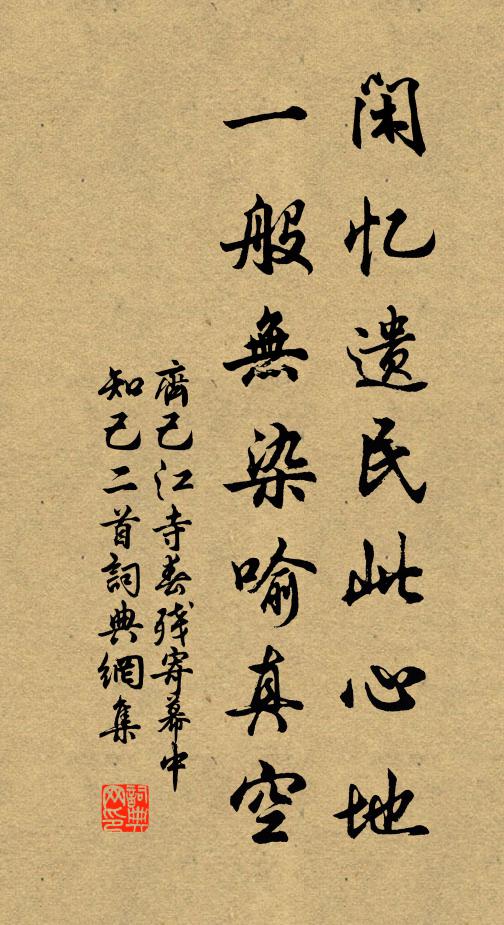 闲忆遗民此心地
一般無染喻真空
齊己江寺春残寄幕中
知己二首詞典網集
詞典网印